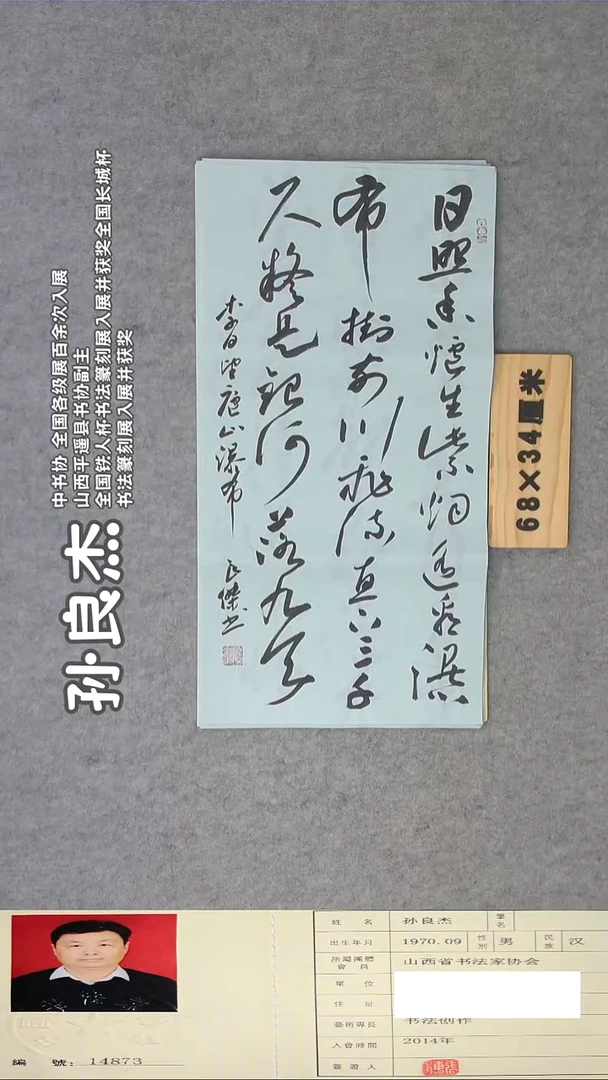 日照香爐生紫烟遥看瀑
布掛前川飛流直下三千
尺疑是銀河落九天
李白望廬山瀑布 良傑书
68×34厘米
孙良杰
中书协 全国各级展百余次入展
山西平遥县书协副主
全国铁人杯书法篆刻展入展并获奖全国长城杯
书法篆刻展入展并获奖
編 號：14873
姓 名 孙良杰 筆名
出生年月 1970.09 性别 男 民族 汉
所屬團體會員 山西省书法家协会
單 位
住 址
藝術專長 书法创作
入會時間 2014年
簽證人